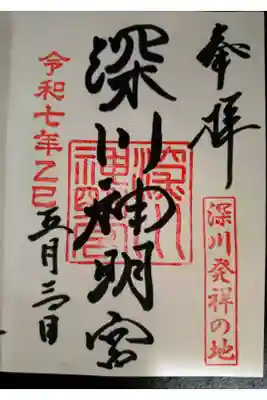 奉拝
深川発祥の地
深川神明宮
令和七年乙巳
五月三日